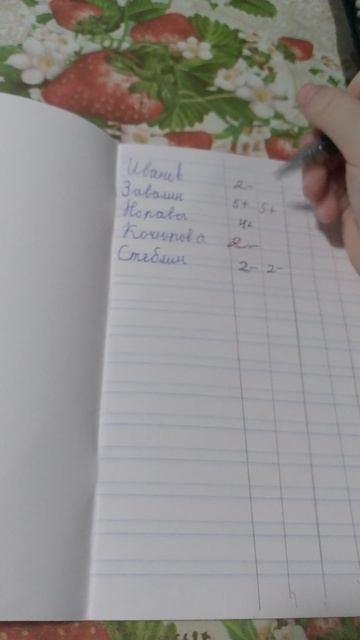 Иванев 2-
Завалин 5+ 5+
Норавы 4+
Кочюрова 2-
Стеблин 2- 2-